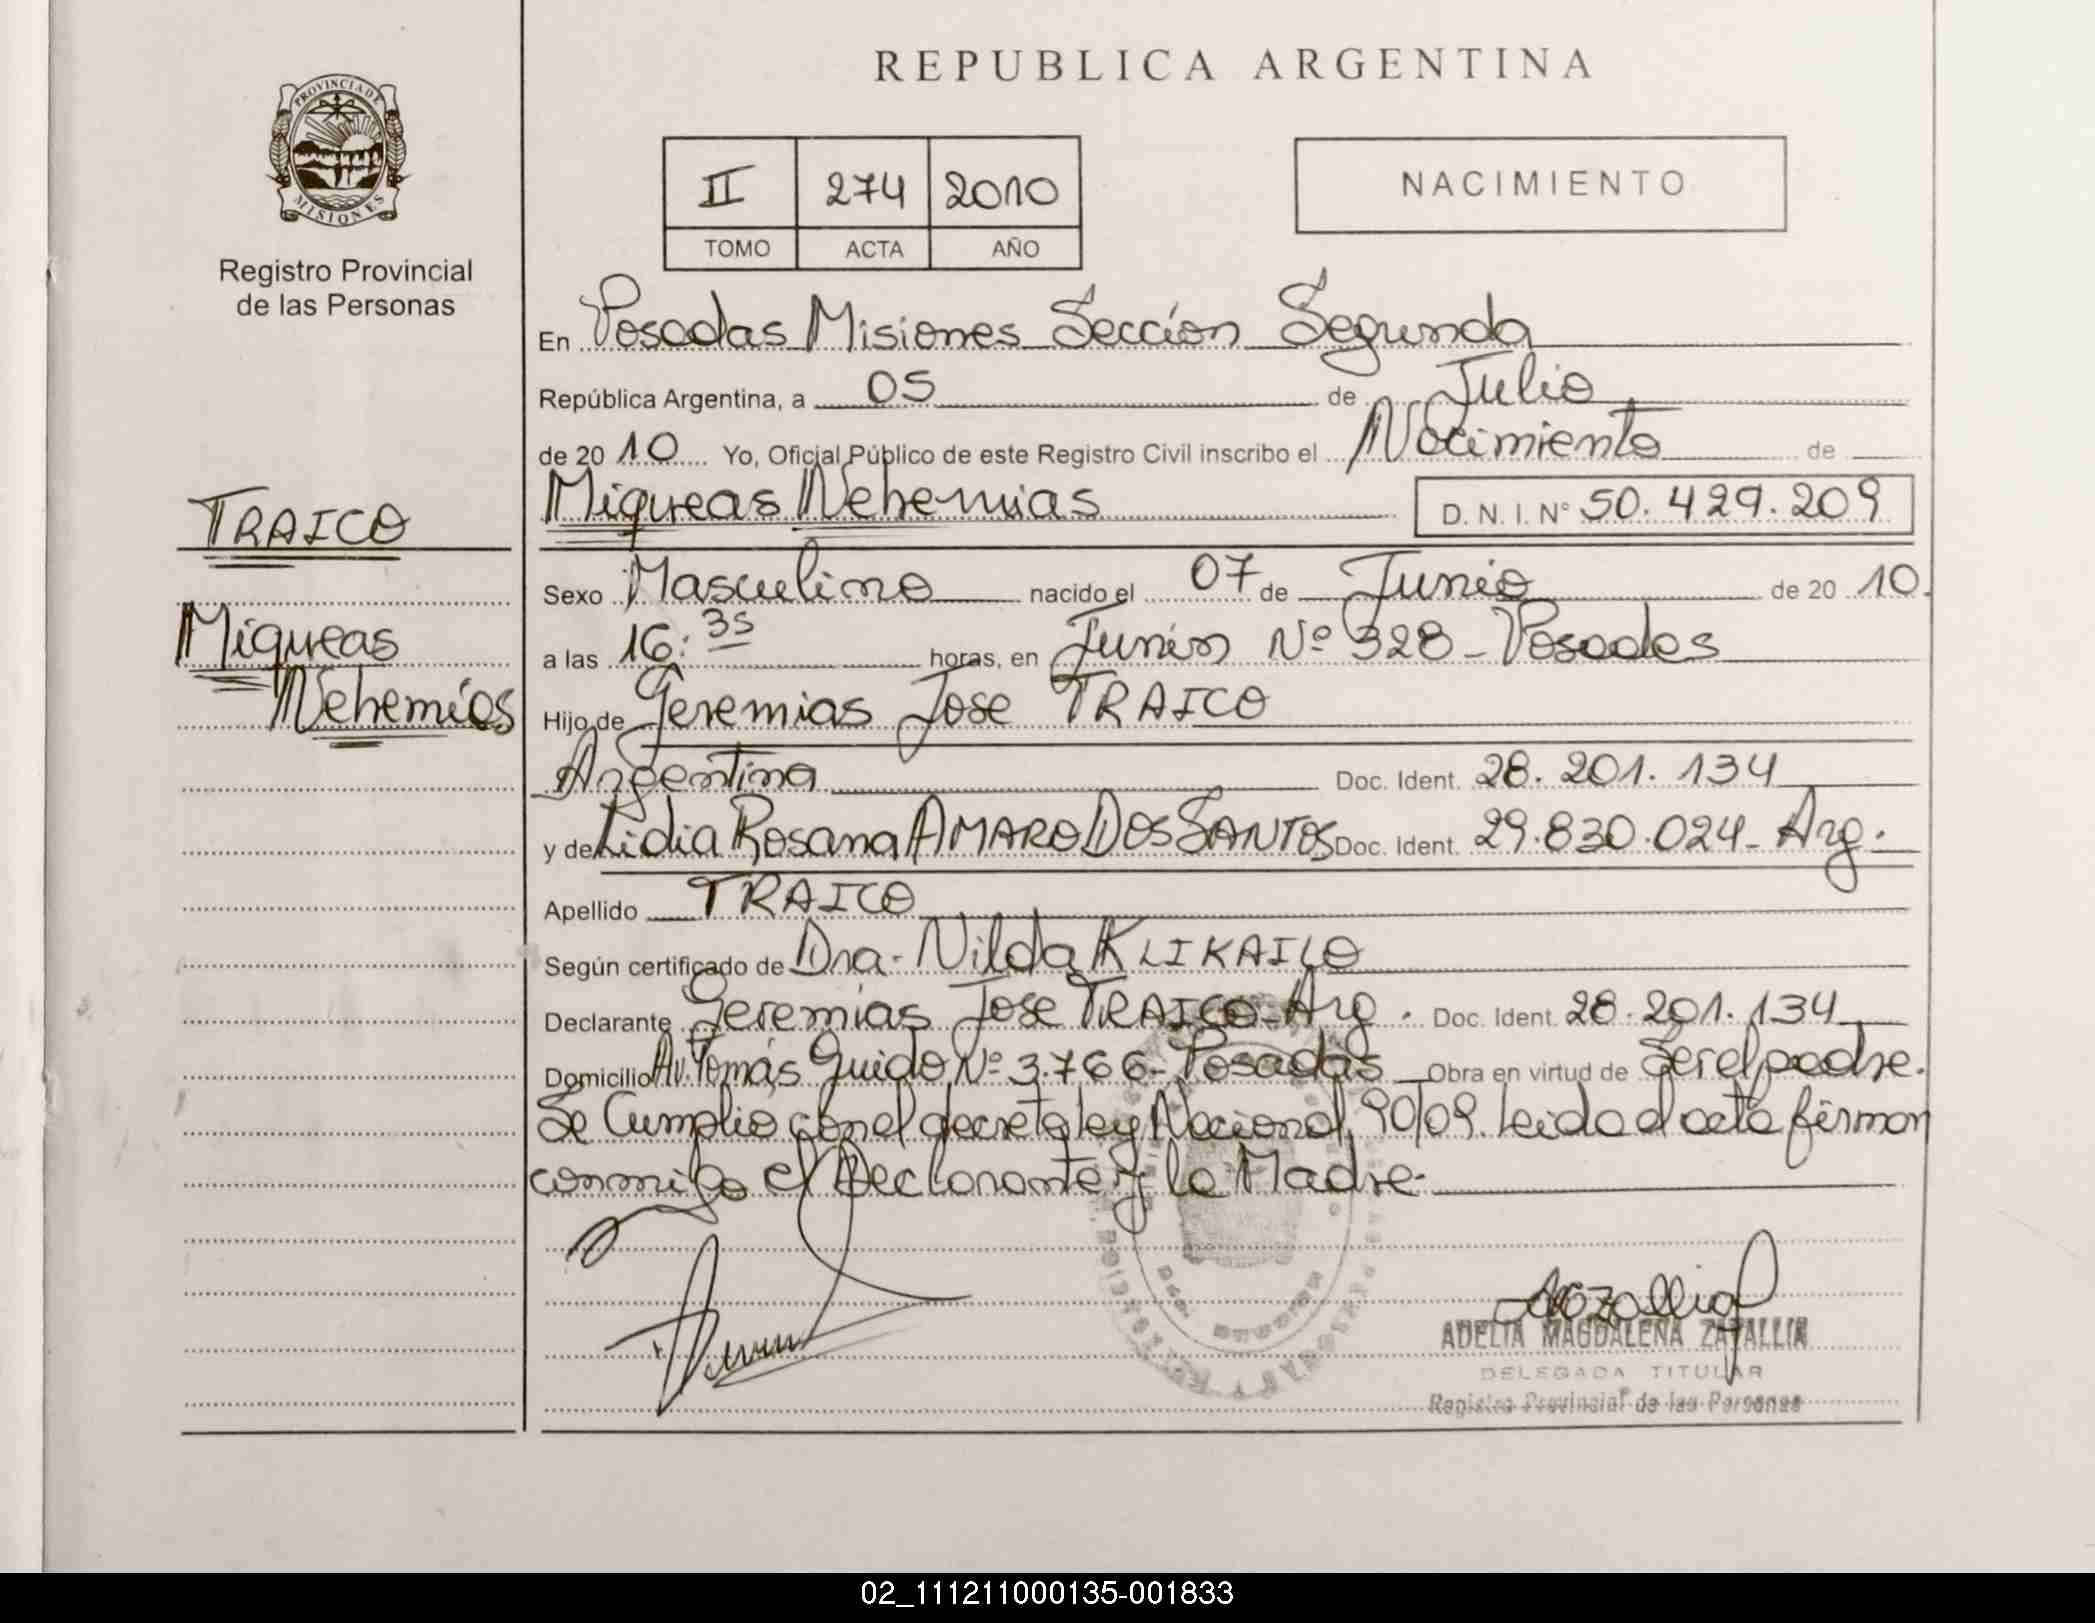 REPUBLICA ARGENTINA
PROVINCIA DE
MISIONES
Registro Provincial
de las Personas
II 274 2010
TOMO ACTA AÑO
NACIMIENTO
En Posadas Misiones Sección Segunda
República Argentina, a 05 de Julio
de 2010 Yo, Oficial Público de este Registro Civil inscribo el Nacimiento de
Miqueas Nehemias D. N. I. Nº 50.429.209
TRAICO
Miqueas
Nehemías
Sexo Masculino nacido el 07 de Junio de 2010.
a las 16:35 horas, en Junín Nº 328 - Posadas
Hijo de Geremias Jose TRAICO
Argentina Doc. Ident. 28.201.134
y de Lidia Rosana AMARO DOS SANTOS Doc. Ident. 29.830.024 - Arg.
Apellido TRAICO
Según certificado de Dra. Nilda KLIKAILO
Declarante Geremias Jose TRAICO - Arg. Doc. Ident. 28.201.134
Domicilio Av. Tomás Guido Nº 3.766 - Posadas Obra en virtud de Ser el padre.
Se Cumplio con el decreto ley Nacional 90/09. Leida el acta firman
conmigo el Declarante y la Madre.
ADELIA MAGDALENA ZAPALLIA
DELEGADA TITULAR
Registro Provincial de las Personas
02_111211000135-001833